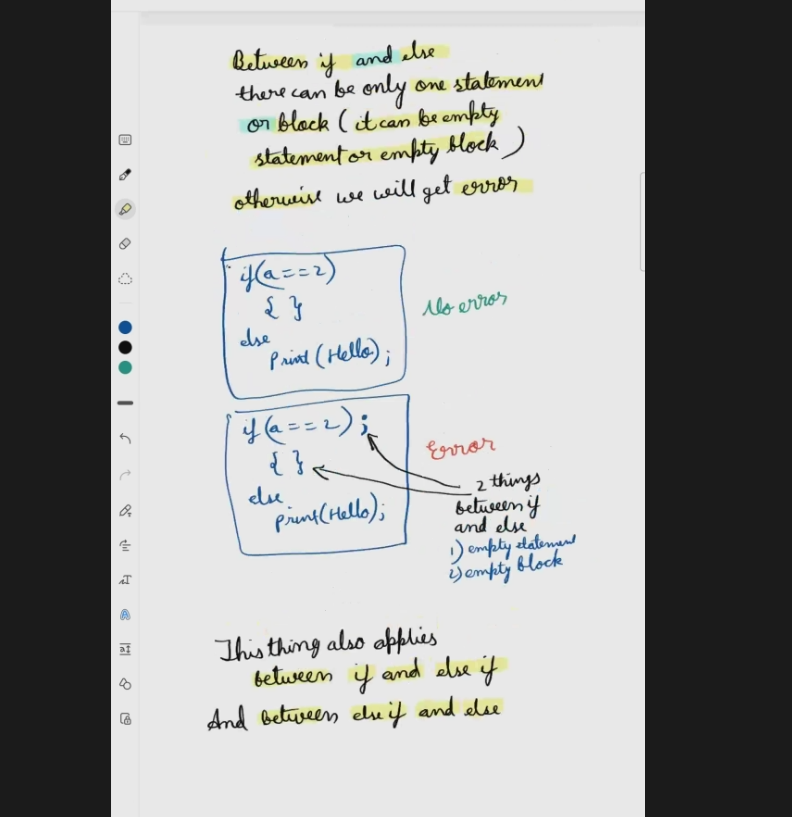 Between if and else
there can be only one statement
or block ( it can be empty
statement or empty block )
otherwise we will get error
if(a==2)
{ }
else
print (Hello);
No error
if (a==2) ;
{ }
else
print(Hello);
Error
2 things
between if
and else
1) empty statement
2) empty block
This thing also applies
between if and else if
And between else if and else